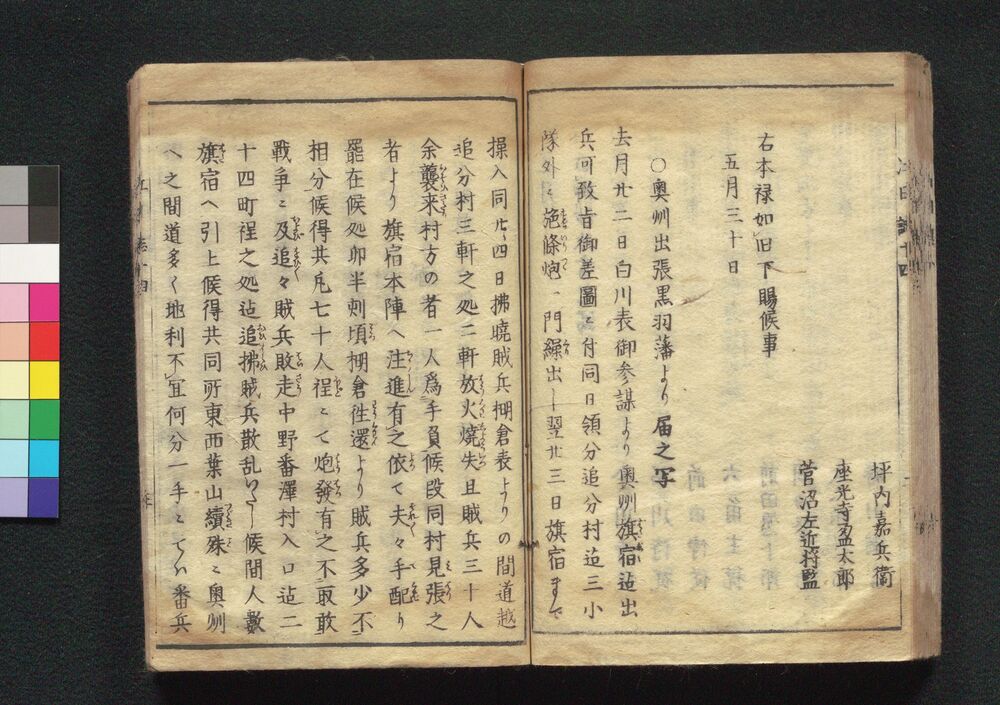 坪内嘉兵衛
座光寺盈太郎
菅沼左近将監
右本禄如旧下賜候事
五月三十日
○奥州出張黒羽藩より届之写
去月廿二日白川表御参謀より奥州旗宿迠出
兵可致旨御差圖ニ付同日領分追分村迠三小
隊外ニ施條炮一門繰出し翌廿三日旗宿まで
操入同廿四日拂暁賊兵棚倉表よりの間道越
追分村三軒之処二軒放火焼失且賊兵三十人
余襲来村方の者一人爲手負候段同村見張之
者より旗宿本陣へ注進有之依て夫々手配り
罷在候処卯半刻頃棚倉徃還より賊兵多少不
相分候得共凡七十人程ニて炮發有之不取敢
戦争ニ及追々賊兵敗走中野番澤村入口迠二
十四町程之処迠追拂賊兵散乱いたし候間人數
旗宿へ引上候得共同所東西葉山續殊ニ奥州
への間道多く地利不宜何分一手ニてハ番兵